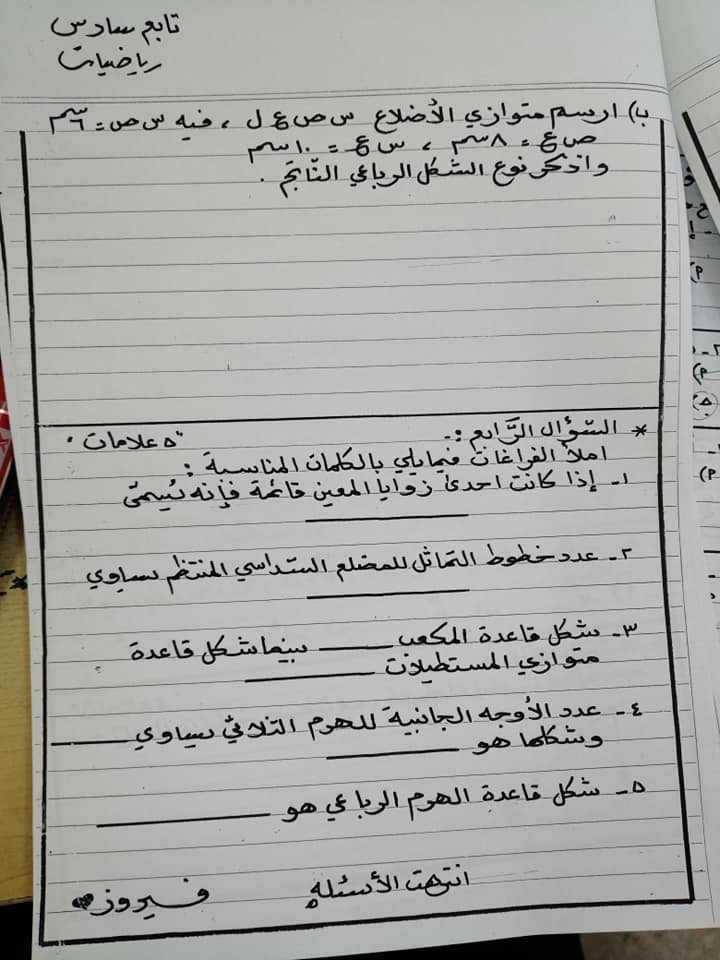 تابع سادس
رياضيات
ب) ارسم متوازي الأضلاع س ص ع ل ، فيه س ص = ٦سم
ص ع = ٨سم ، س ع = ١٠سم
واذكر نوع الشكل الرباعي الناتج .
* السؤال الرّابع :- "٥ علامات"
املأ الفراغات فيمايلي بالكلمات المناسبة :
١- إذا كانت احدى زوايا المعين قائمة فإنه يُسمّى
ــــــــــــــ
٢- عدد خطوط التماثل للمضلع السّداسي المنتظم يساوي
ــــــــــــــ
٣- شكل قاعدة المكعب ـــــــــ بينما شكل قاعدة
متوازي المستطيلات ــــــــــــــ
٤- عدد الأوجه الجانبية للهرم الثلاثي يساوي ـــــــــ
وشكلها هو ــــــــــــــ
٥- شكل قاعدة الهرم الرباعي هو ــــــــــــــ
انتهت الأسئلة
فيروز